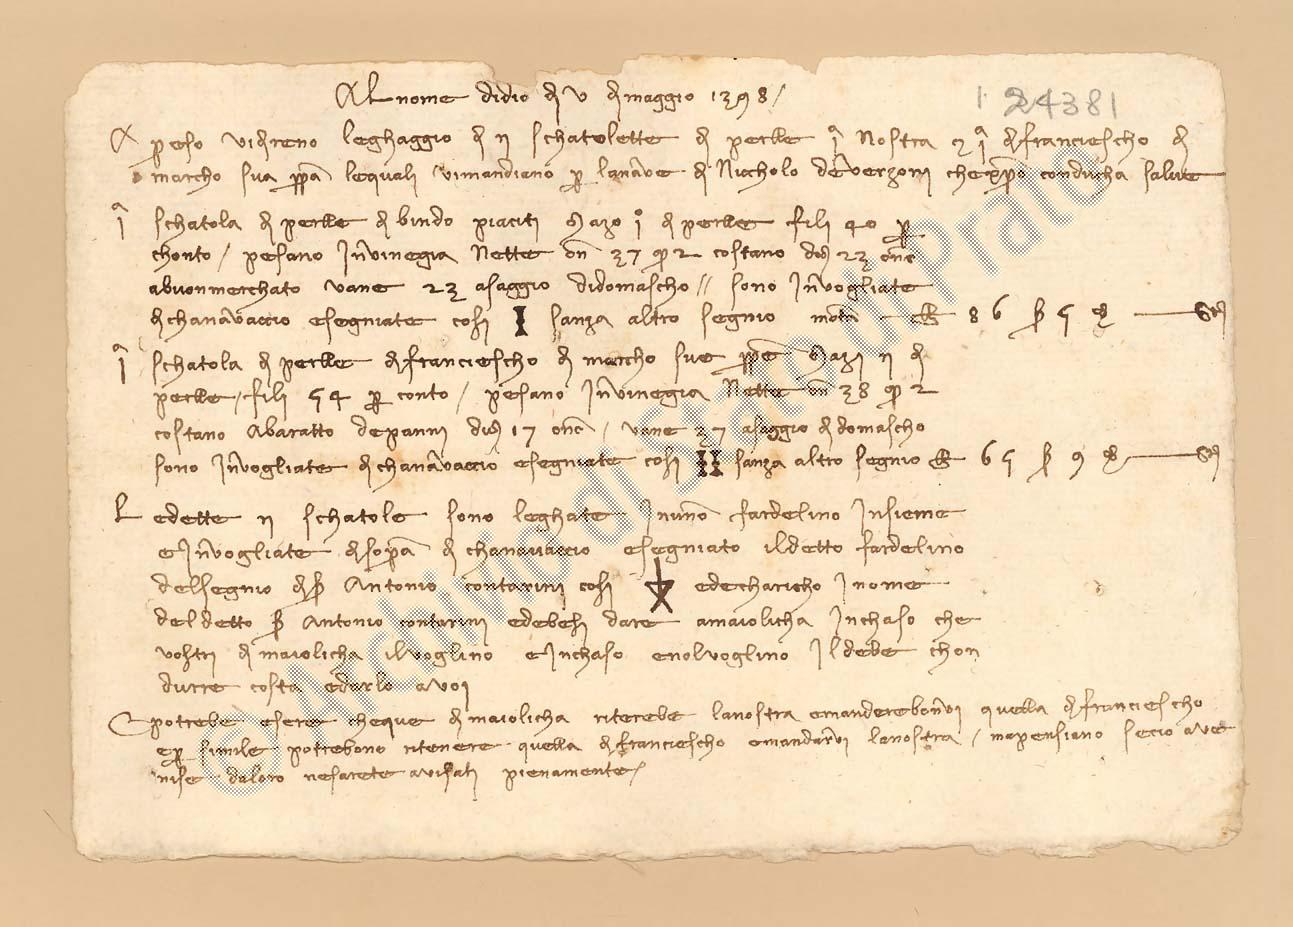 Al nome di dio di V di maggio 1398 /
1 24381
Apreso vi direno leghaggio di II schatolette di perlle i.a nostra e i.a di franciescho di
marcho sua propia le quali vi mandiano per la nave di Nicholo de Verzoni che Xpo conducha salve
i.a schatola di perlle di bindo piaciti mazo i.o di perlle fili 40 per
chonto / pesano in vinegia nette on 37 qr 2 costano d. 23 onc
a buon merchato vane 23 a saggio di domascho // sono invogliate
di chanavaccio e segniate cosi sanza altro segnio monta L 86 s 5 d
i.a schatola di perlle di franciescho di marcho sue propie mazi II di
perlle / fili 54 per conto / pesano in vinegia nette on 38 qr 2
costano a baratto de panni d. 17 onc / vane 37 a saggio di domascho
sono invogliate di chanavaccio e segniate cosi sanza altro segnio L 65 s 9 d
Le dette II schatole sono leghate in uno fardelino insieme
e invogliate di sopra di chanavaccio e segniato il detto fardelino
del segnio di s Antonio contarini cosi ed e charicho i nome
del detto s Antonio contarini e debesi dare a maiolicha in chaso che
vostri di maiolicha il voglino e in chaso e nol voglino il debe chon
durre costa e darlo a voi
E potrebe esere che que di maiolicha riterebe la nostra e manderebonvi quella di franciescho
e per simile potrebono ritenere quella di franciescho e mandarvi la nostra / ma pensiano se cio ave
nise da loro ne sarete avisati pienamente /
© Archivio di Stato di Prato